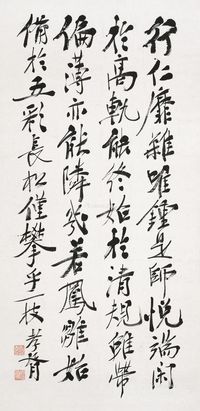 行仁靡雜唯鍾是師悅端閑
於高軌能終始於清規雖幣
偏薄亦能隣幾若鳳雛始
備於五彩長松僅攀乎一枝孝胥